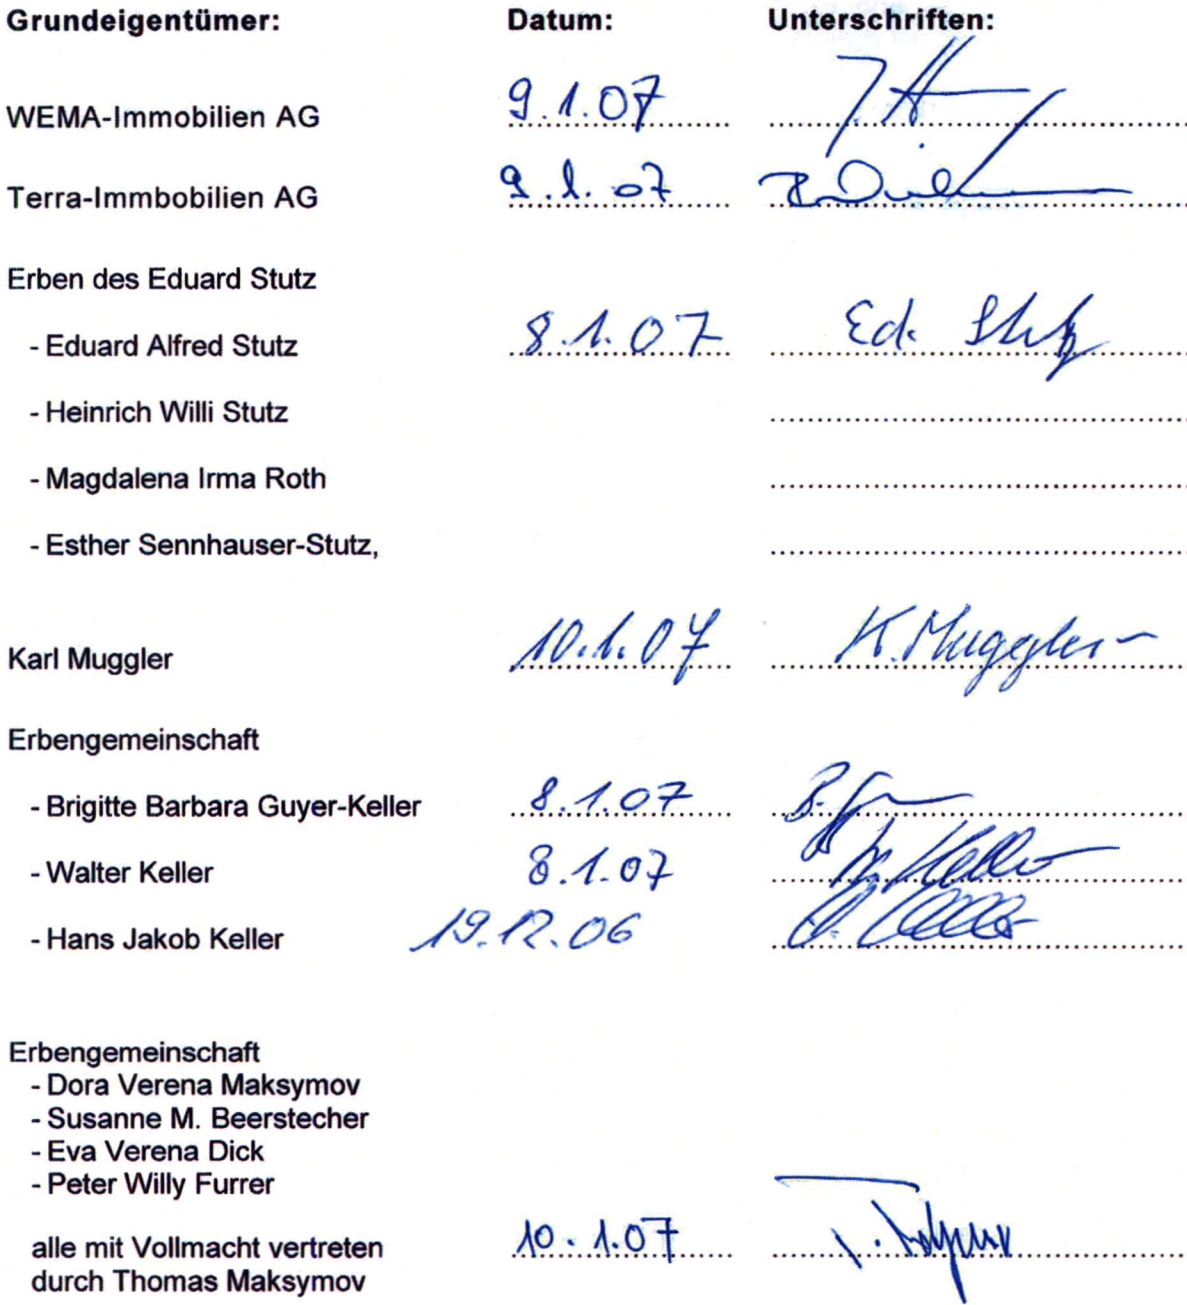 Grundeigentümer: Datum: Unterschriften:
WEMA-Immobilien AG 9.1.07
Terra-Immbobilien AG 9.1.07
Erben des Eduard Stutz
- Eduard Alfred Stutz 8.1.07 Ed. Stutz
- Heinrich Willi Stutz
- Magdalena Irma Roth
- Esther Sennhauser-Stutz,
Karl Muggler 10.1.07 K. Muggler
Erbengemeinschaft
- Brigitte Barbara Guyer-Keller 8.1.07
- Walter Keller 8.1.07 W. Keller
- Hans Jakob Keller 19.12.06 Keller
Erbengemeinschaft
- Dora Verena Maksymov
- Susanne M. Beerstecher
- Eva Verena Dick
- Peter Willy Furrer
alle mit Vollmacht vertreten 10.1.07
durch Thomas Maksymov